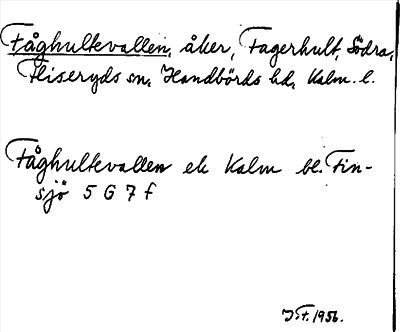 Fåghultevallen, åker, Fagerhult, Södra,
Fliseryds sn, Handbörds hd, Kalm. l.
Fåghultevallen ek Kalm bl. Fin-
sjö 5 G 7 f
1956.